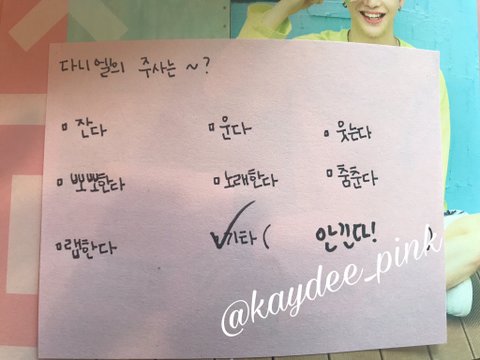 다니엘의 주사는 ~?
□ 잔다 □ 운다 □ 웃는다
□ 뽀뽀한다 □ 노래한다 □ 춤춘다
□ 랩한다 ☑ 기타 ( 안긴다! )
@kaydee_pink